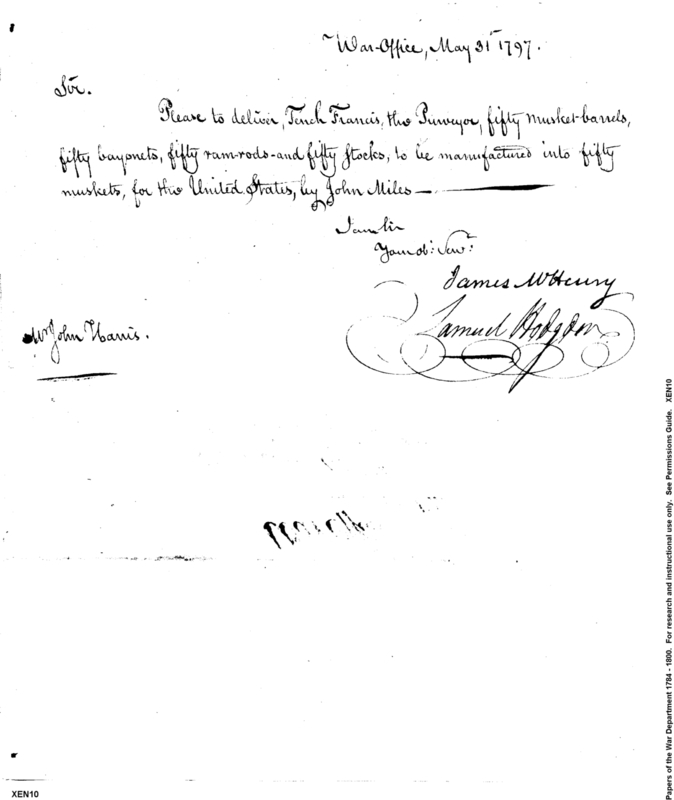 War-Office, May 31st 1797.
Sir.
Please to deliver, Tench Francis, the Purveyor, fifty musket-barrels,
fifty bayonets, fifty ram-rods-and fifty stocks, to be manufactured into fifty
muskets, for the United States, by John Miles—
I am Sir
Your ob: Serv:
James McHenry
Samuel Hodgdon
Mr John Harris.
XEN10
Papers of the War Department 1784 - 1800. For research and instructional use only. See Permissions Guide. XEN10